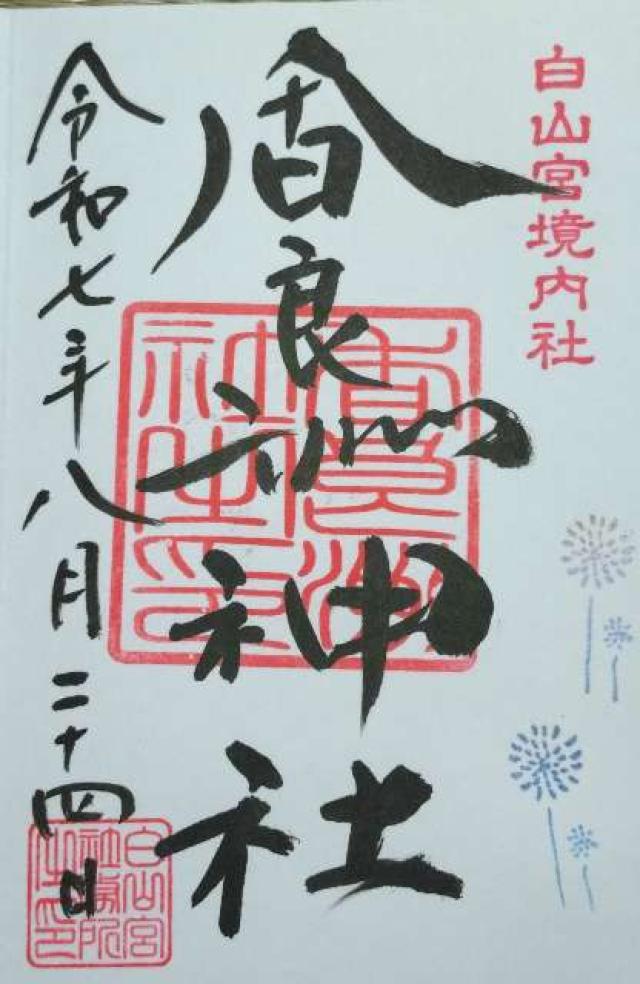 白山宮境内社
香良洲神社
令和七年八月二十四日
白山宮
社務所
之印